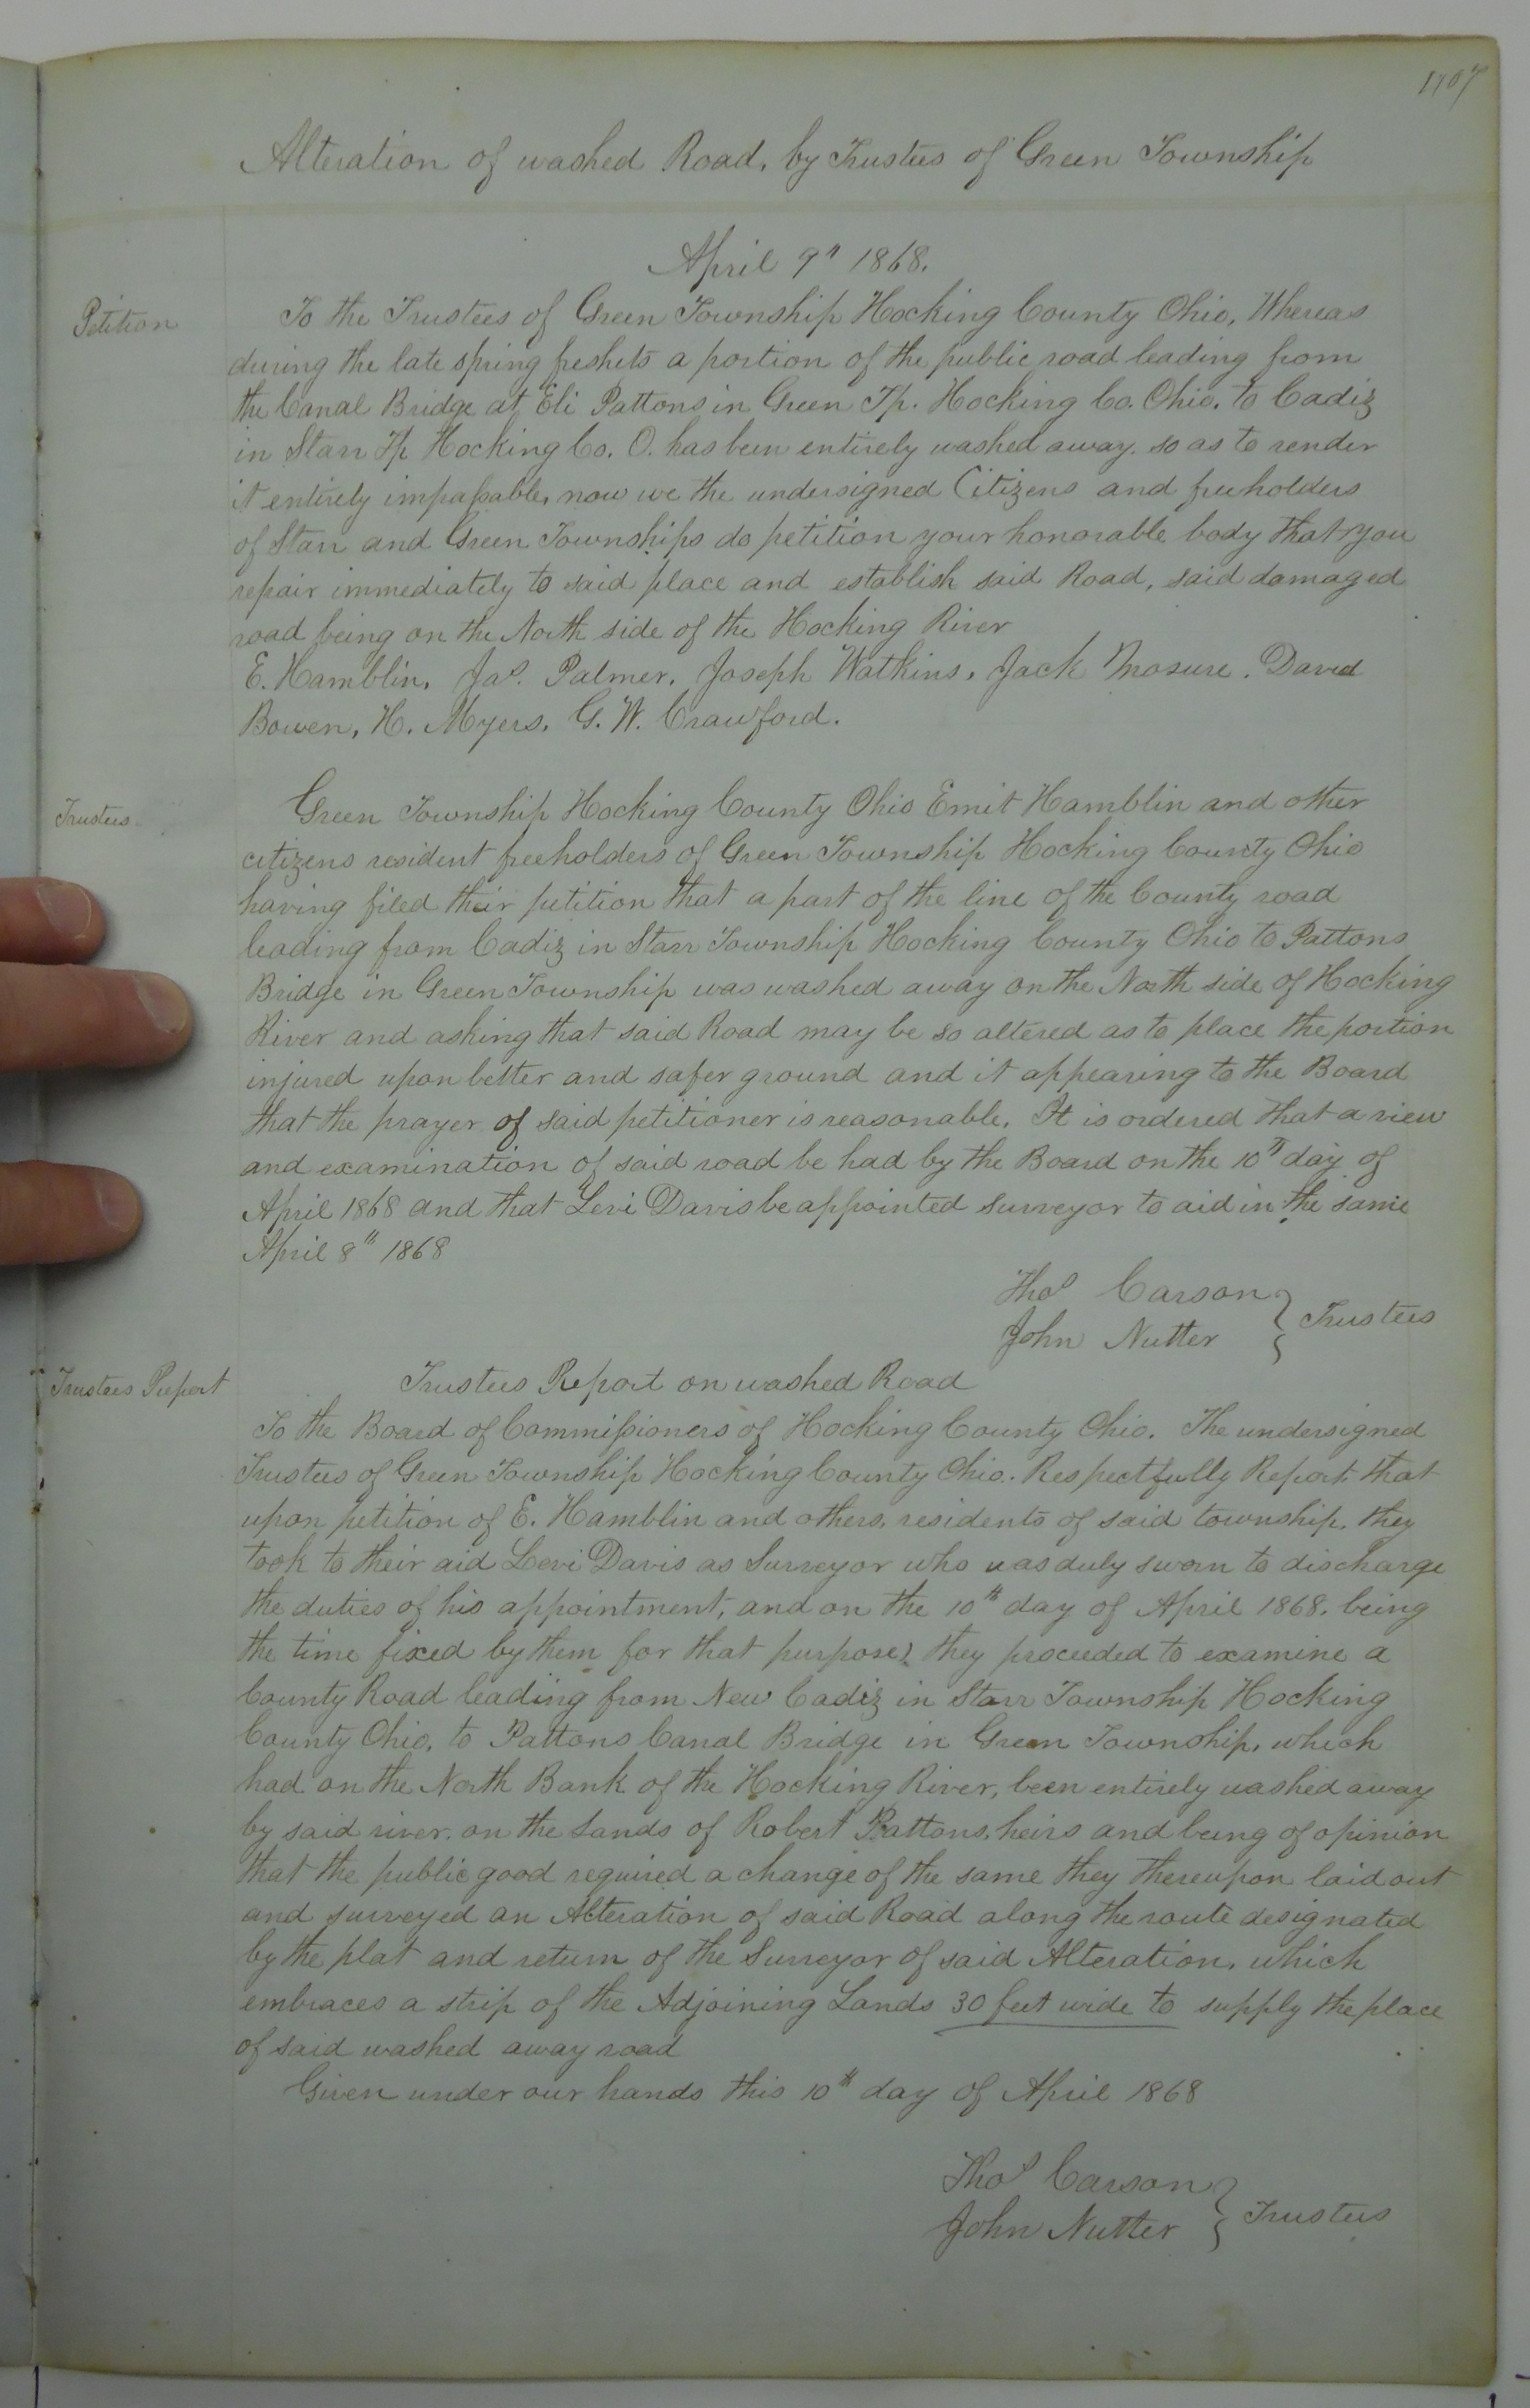 Alteration of washed Road, by Trustees of Green Township
April 9" 1868.
Petition
To the Trustees of Green Township Hocking County Ohio, Whereas
during the late spring freshets a portion of the public road leading from
the Canal Bridge at Eli Pattons in Green Tp. Hocking Co. Ohio, to Cadiz
in Starr Tp Hocking Co. O. has been entirely washed away so as to render
it entirely impassable, now we the undersigned Citizens and freeholders
of Starr and Green Townships do petition your honorable body that you
repair immediately to said place and establish said Road, said damaged
road being on the North side of the Hocking River
E. Hamblin, Jas. Palmer, Joseph Watkins, Jack Mosure, David
Bowen, H. Myers, G. W. Crawford.
Trustees
Green Township Hocking County Ohio Emit Hamblin and other
citizens resident freeholders of Green Township Hocking County Ohio
having filed their petition that a part of the line of the County road
leading from Cadiz in Starr Township Hocking County Ohio to Pattons
Bridge in Green Township was washed away on the North side of Hocking
River and asking that said Road may be so altered as to place the portion
injured upon better and safer ground and it appearing to the Board
that the prayer of said petitioner is reasonable. It is ordered that a view
and examination of said road be had by the Board on the 10" day of
April 1868 and that Levi Davis be appointed surveyor to aid in the same
April 8" 1868
Thos Carson
John Nutter } Trustees
Trustees Report
Trustees Report on washed Road
To the Board of Commissioners of Hocking County Ohio. The undersigned
Trustees of Green Township Hocking County Ohio. Respectfully Report that
upon petition of E. Hamblin and others, residents of said township, they
took to their aid Levi Davis as Surveyor who was duly sworn to discharge
the duties of his appointment, and on the 10th day of April 1868, being
the time fixed by them for that purpose, they proceeded to examine a
County Road leading from New Cadiz in Starr Township Hocking
County Ohio, to Pattons Canal Bridge in Green Township, which
had on the North Bank of the Hocking River, been entirely washed away
by said river, on the Lands of Robert Pattons, heirs and being of opinion
that the public good required a change of the same they thereupon laid out
and surveyed an Alteration of said Road along the route designated
by the plat and return of the Surveyor of said Alteration, which
embraces a strip of the Adjoining Lands 30 feet wide to supply the place
of said washed away road
Given under our hands this 10th day of April 1868
Thos Carson
John Nutter } Trustees